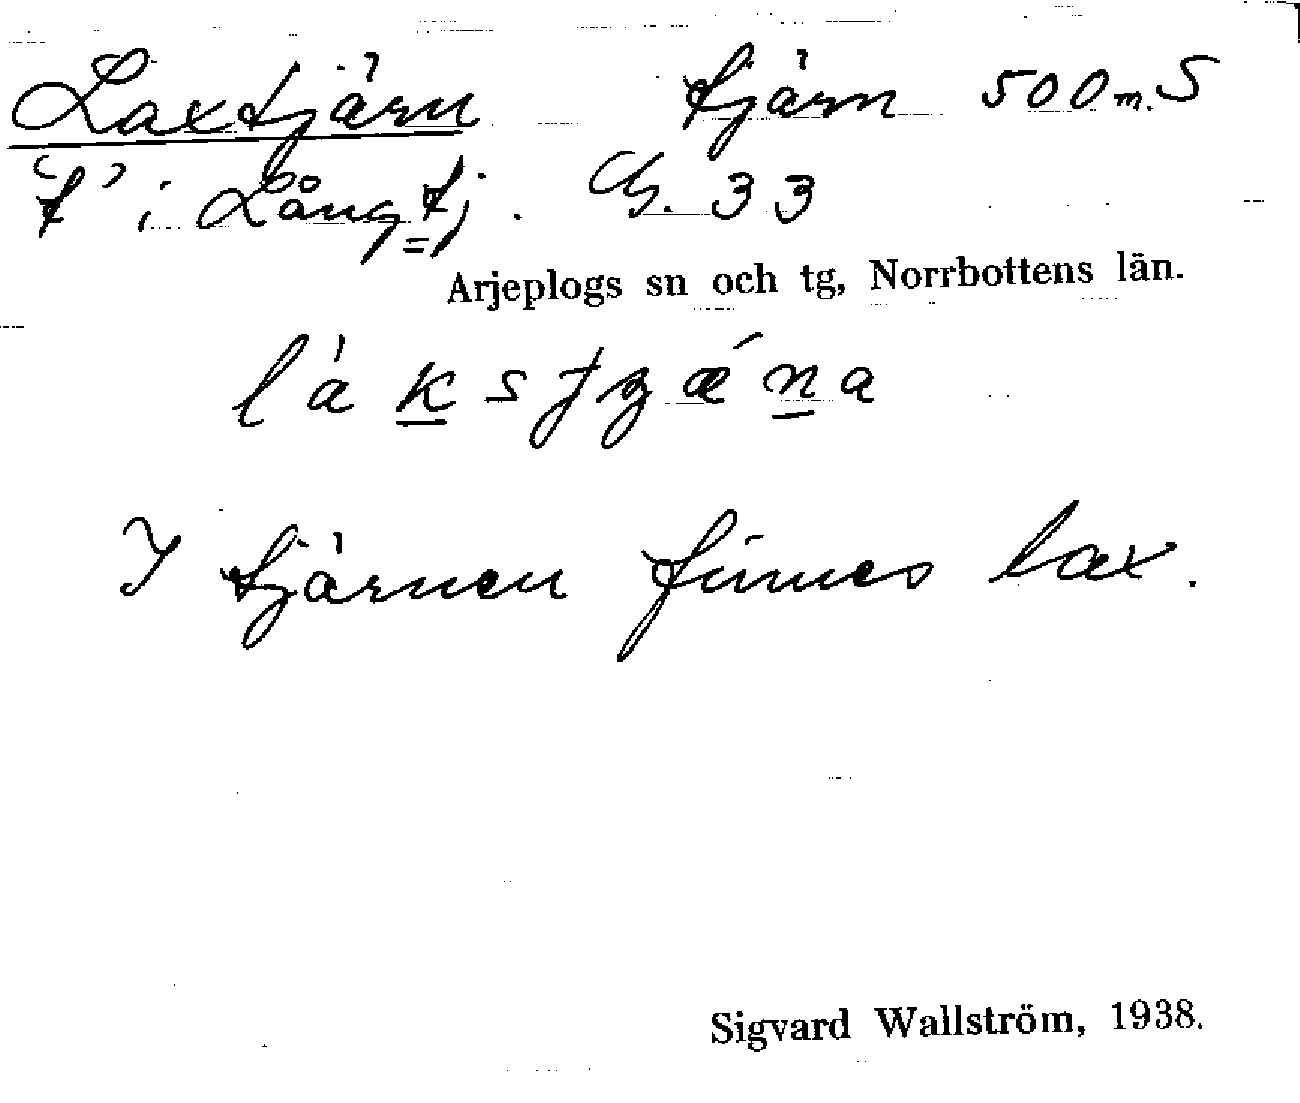 Laxtjärn tjärn 500 m. S
"t" i Långtj. G. 33
Arjeplogs sn och tg, Norrbottens län.
làkstʒǽna
I tjärnen finnes lax.
Sigvard Wallström, 1938.